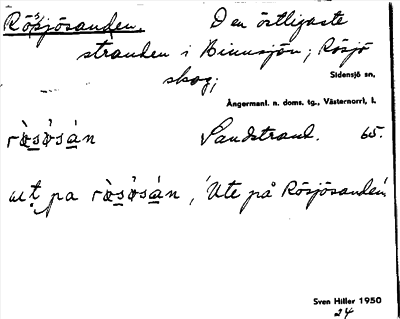 Rösjösanden. Den östligaste
stranden i Binnsjön; Rösjö
skog;
Sidensjö sn,
Ångermanl. n. doms. tg., Västernorrl, l.
Sandstrand. 65.
pa 'Ute på Rösjösanden'.
Sven Hiller 1950
24